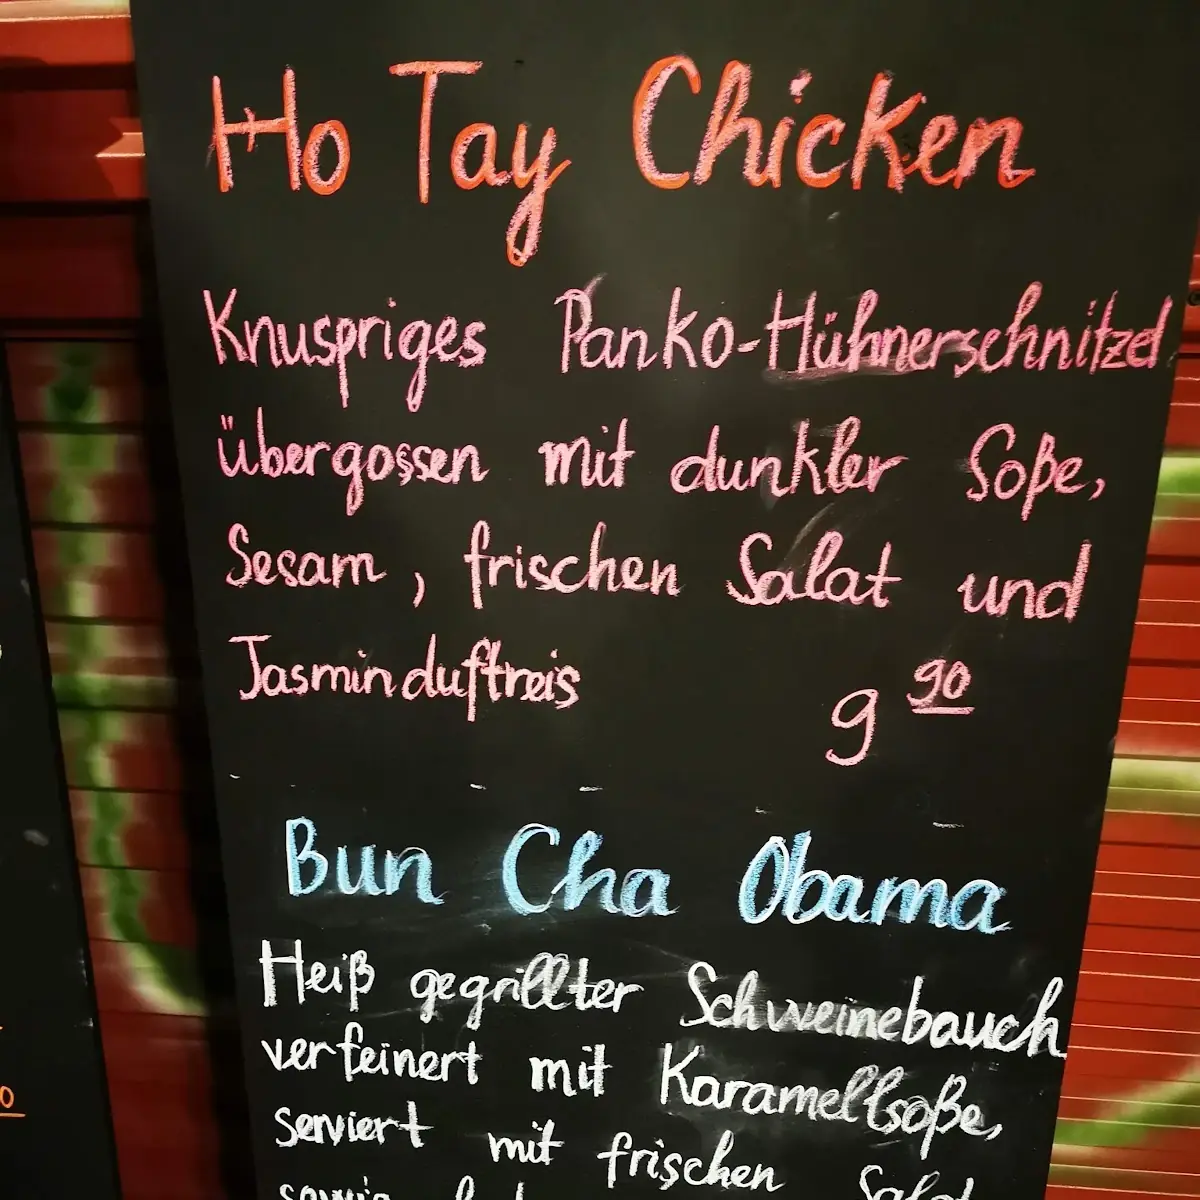 Ho Tay Chicken
Knuspriges Panko-Hühnerschnitzel
übergossen mit dunkler Soße,
Sesam, frischen Salat und
Jasminduftreis 9 90
Bun Cha Obama
Heiß gegrillter Schweinebauch
verfeinert mit Karamellsoße,
serviert mit frischen Salat
sowie